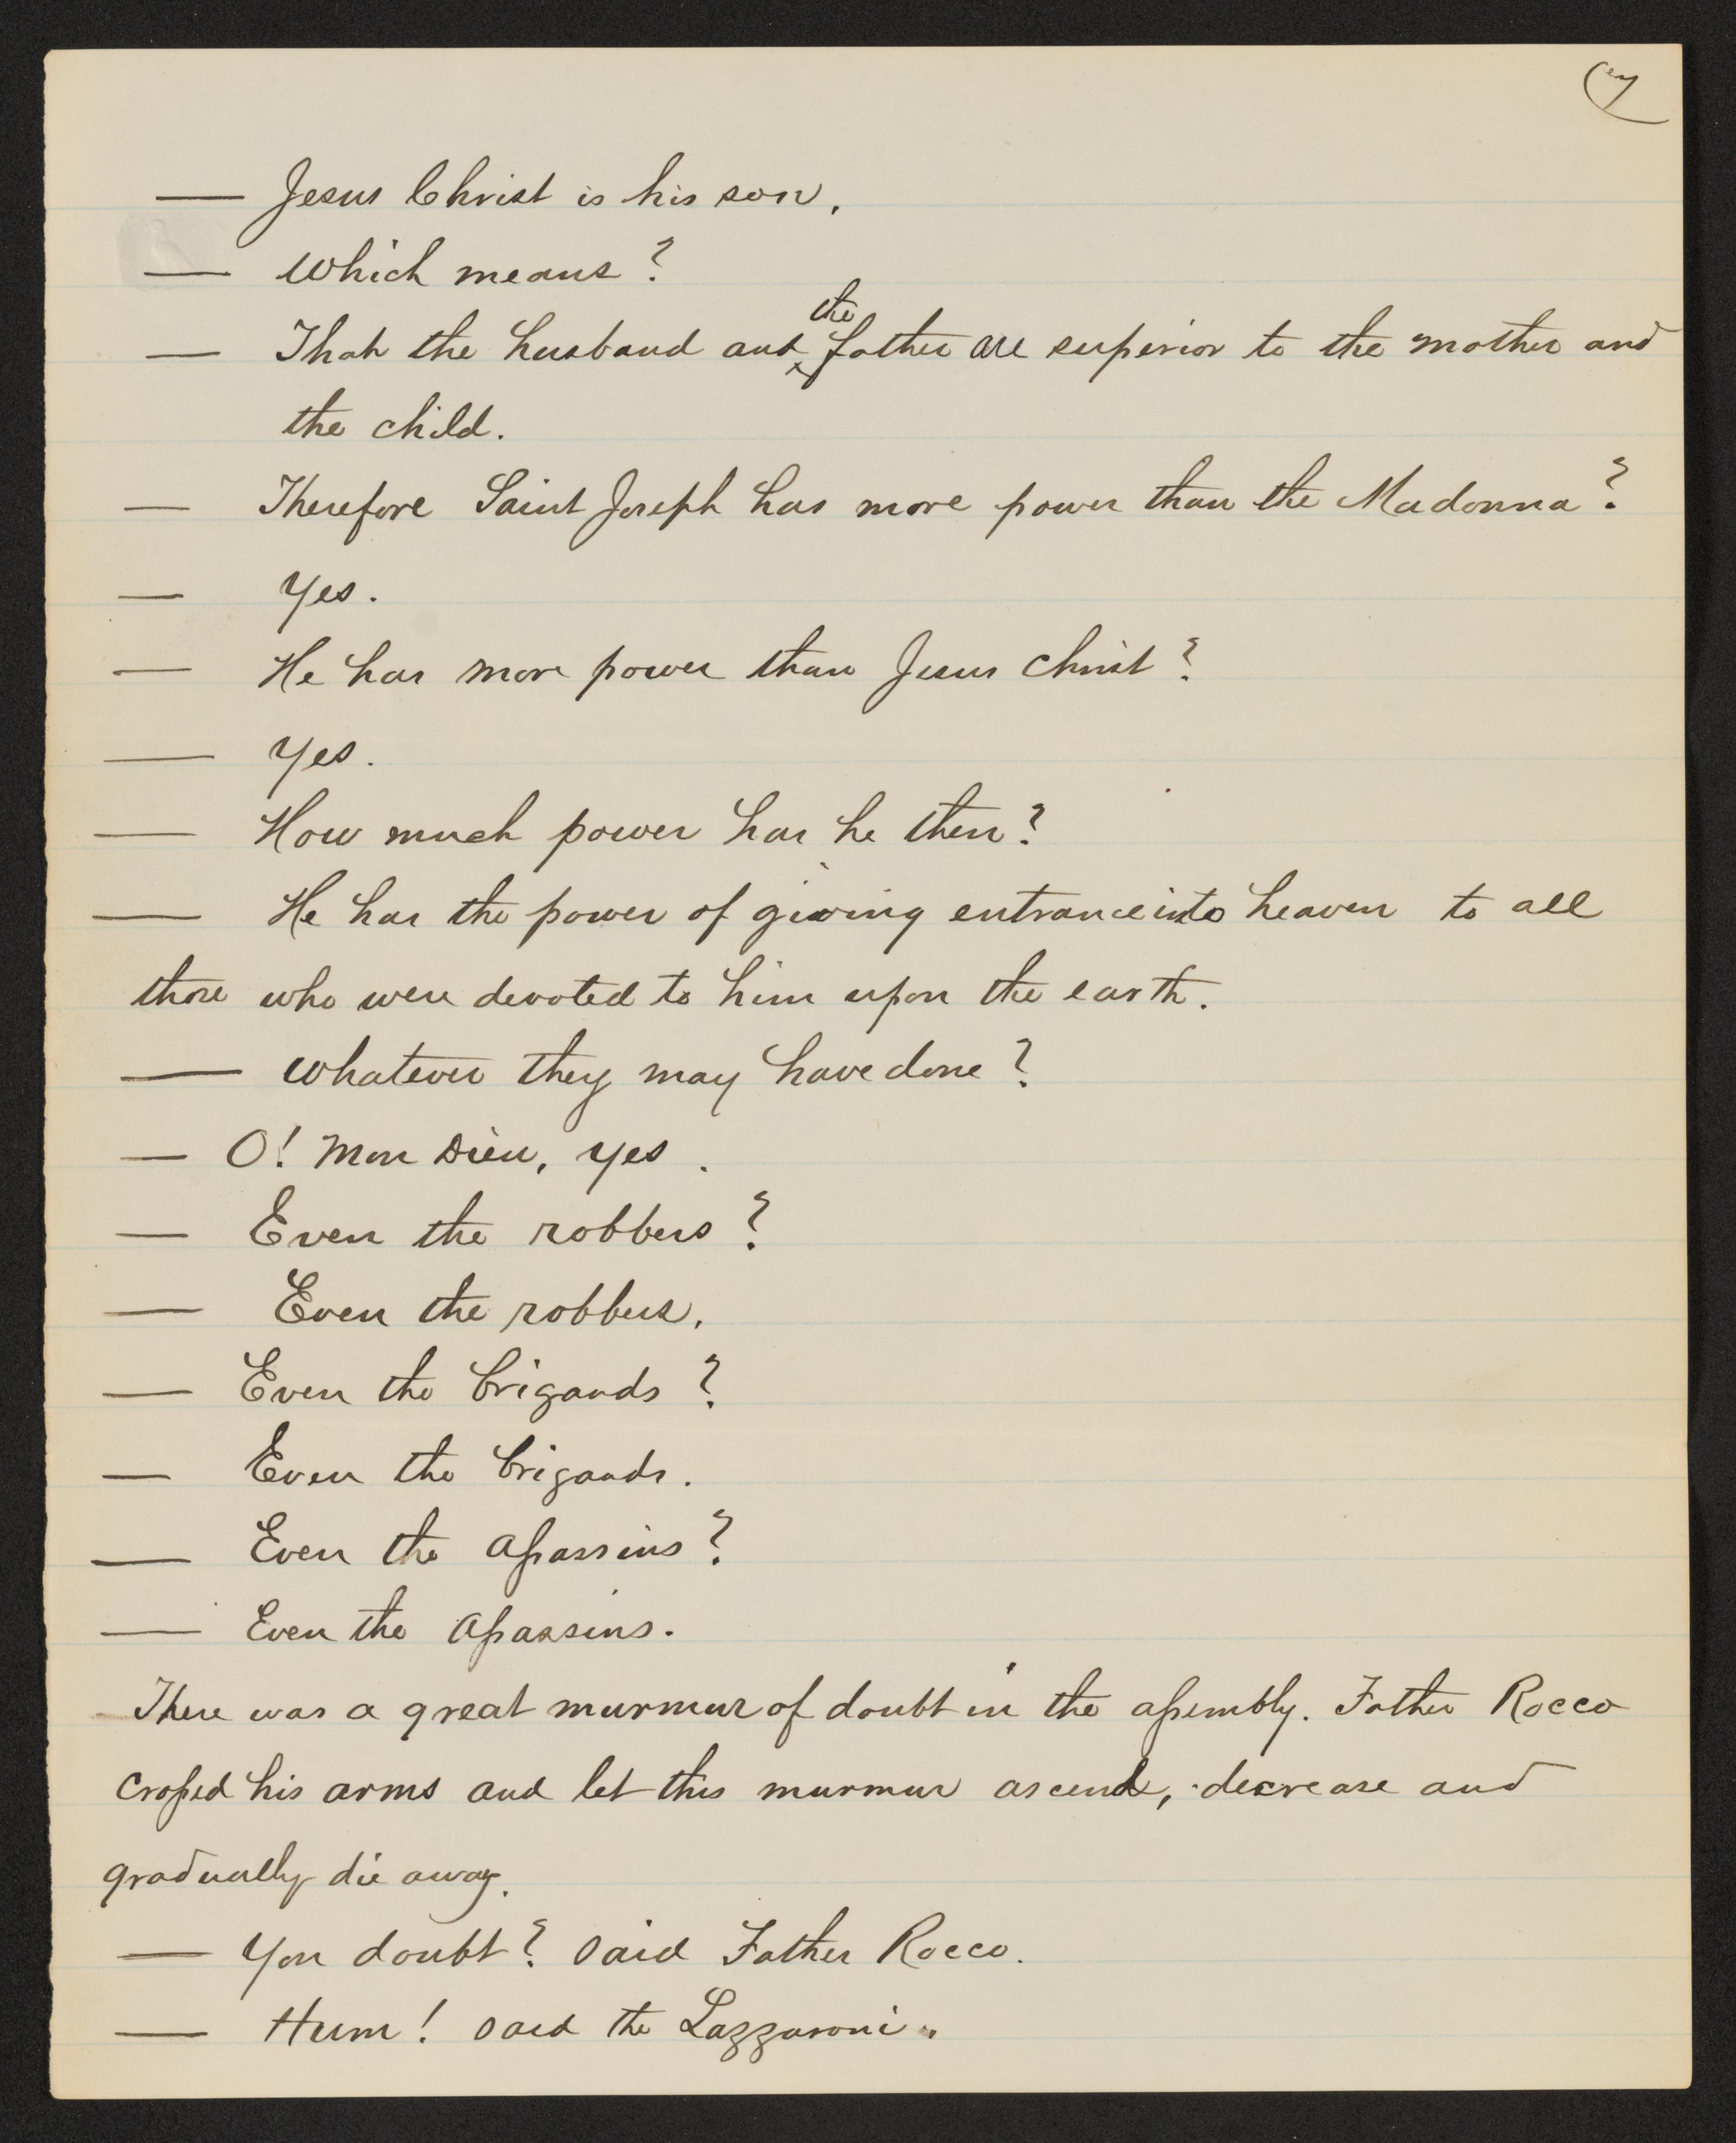 7
— Jesus Christ is his son.
— Which means?
— That the husband and the father are superior to the mother and
the child.
— Therefore Saint Joseph has more power than the Madonna?
— Yes.
— He has more power than Jesus Christ?
— Yes.
— How much power has he then?
— He has the power of giving entrance into heaven to all
those who were devoted to him upon the earth.
— Whatever they may have done?
— O! Mon Dieu, yes.
— Even the robbers?
— Even the robbers.
— Even the brigands?
— Even the brigands.
— Even the assassins?
— Even the assassins.
There was a great murmur of doubt in the assembly. Father Rocco
crossed his arms and let this murmur ascend, decrease and
gradually die away.
— You doubt? said Father Rocco.
— Hum! said the Lazzaroni.